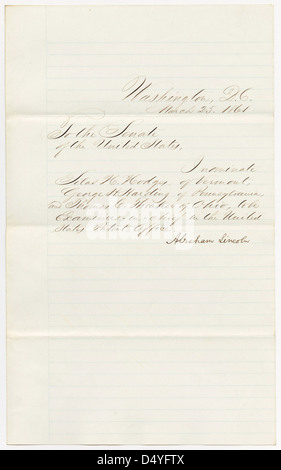 Washington, D.C.
March 23. 1861
To the Senate
of the United States.
I nominate
Silas H. Hodges of Vermont,
George of Pennsylvania
and Thomas of Ohio, to be
Examiners in chief in the United
States Patent Office.
Abraham Lincoln
alamy
Image ID: D4YFTX
www.alamy.com